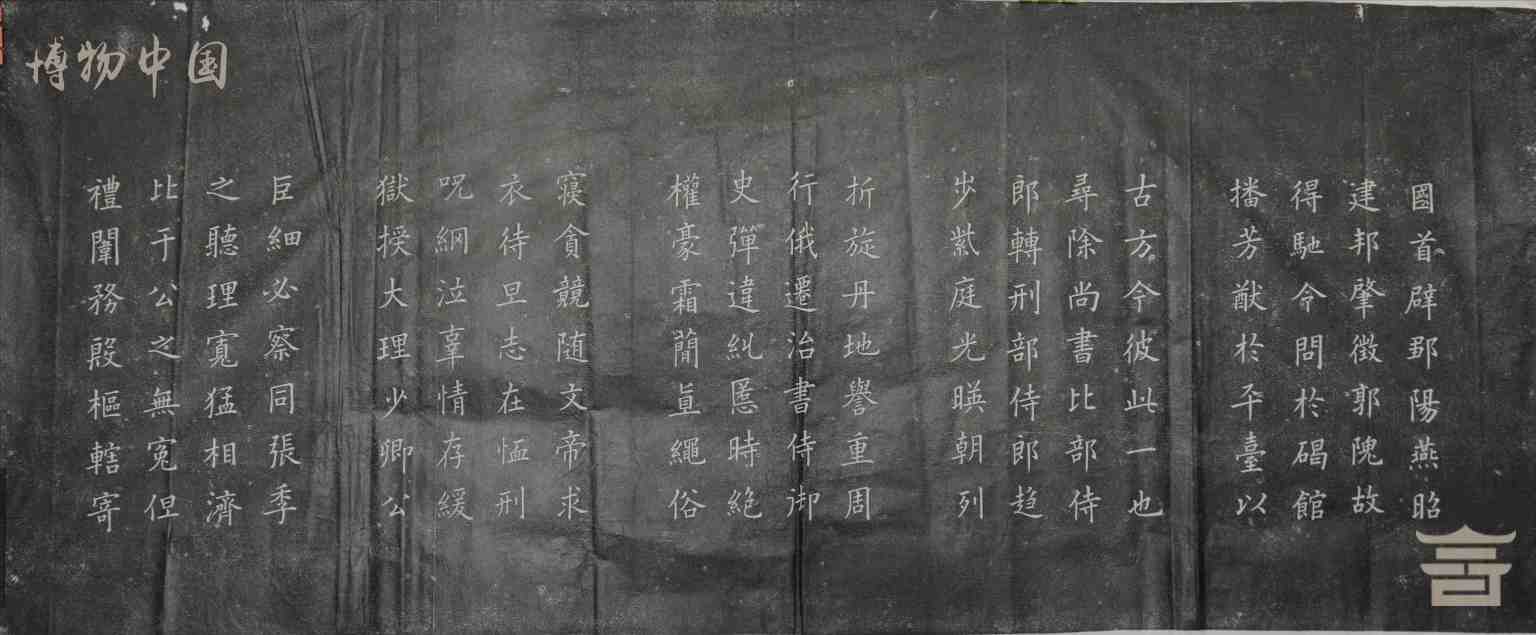 博物中国
國首辟郢陽燕昭
建邦肇徵郭隗故
得馳令問於碣館
播芳猷於平臺以
古方今彼此一也
尋除尚書比部侍
郎轉刑部侍郎趍
步紫庭光暎朝列
折旋丹地譽重周
行俄遷治書侍御
史彈違糾慝時絕
權豪霜簡直繩俗
寢貪競随文帝求
衣待旦志在恤刑
咒網泣辜情存緩
獄授大理少卿公
巨細必察同張季
之聽理寬猛相濟
比于公之無冤但
禮闈務殷樞轄寄